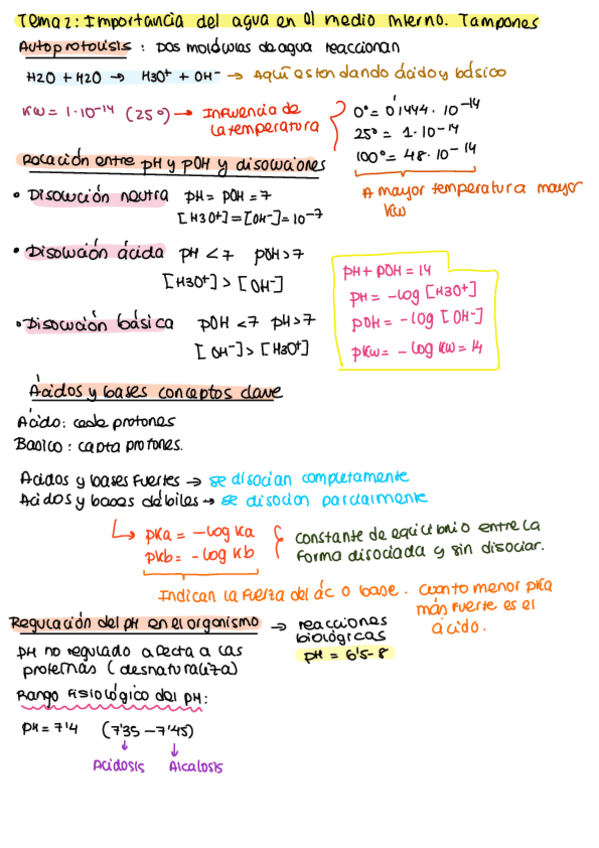 Tema 2: Importancia del agua en el medio interno. Tampones
Autoprotolisis : Dos moléculas de agua reaccionan
H2O + H2O → H3O+ + OH- → Aquí están dando ácido y básico
Kw = 1·10-14 (25º) → Influencia de la temperatura
0º = 0'1444 · 10-14
25º = 1 · 10-14
100º = 48 · 10-14
A mayor temperatura mayor
Kw
Relación entre pH y pOH y disoluciones
• Disolución neutra pH = pOH = 7
[H3O+] = [OH-] = 10-7
• Disolución ácida pH < 7 pOH > 7
[H3O+] > [OH-]
• Disolución básica pOH < 7 pH > 7
[OH-] > [H3O+]
pH + pOH = 14
pH = -log [H3O+]
pOH = -log [OH-]
pKw = -log Kw = 14
Ácidos y bases conceptos clave
Ácido: cede protones
Básico: capta protones.
Ácidos y bases fuertes → se disocian completamente
Ácidos y bases débiles → se disocian parcialmente
↳ pKa = -log Ka
pKb = -log Kb
constante de equilibrio entre la
forma disociada y sin disociar.
Indican la fuerza del ác o base. Cuanto menor pKa
más fuerte es el
ácido.
Regulación del pH en el organismo → reacciones
biológicas
pH = 6'5-8
pH no regulado afecta a las
proteínas (desnaturaliza)
Rango fisiológico del pH:
pH = 7'4 (7'35 - 7'45)
↓ ↓
Acidosis Alcalosis